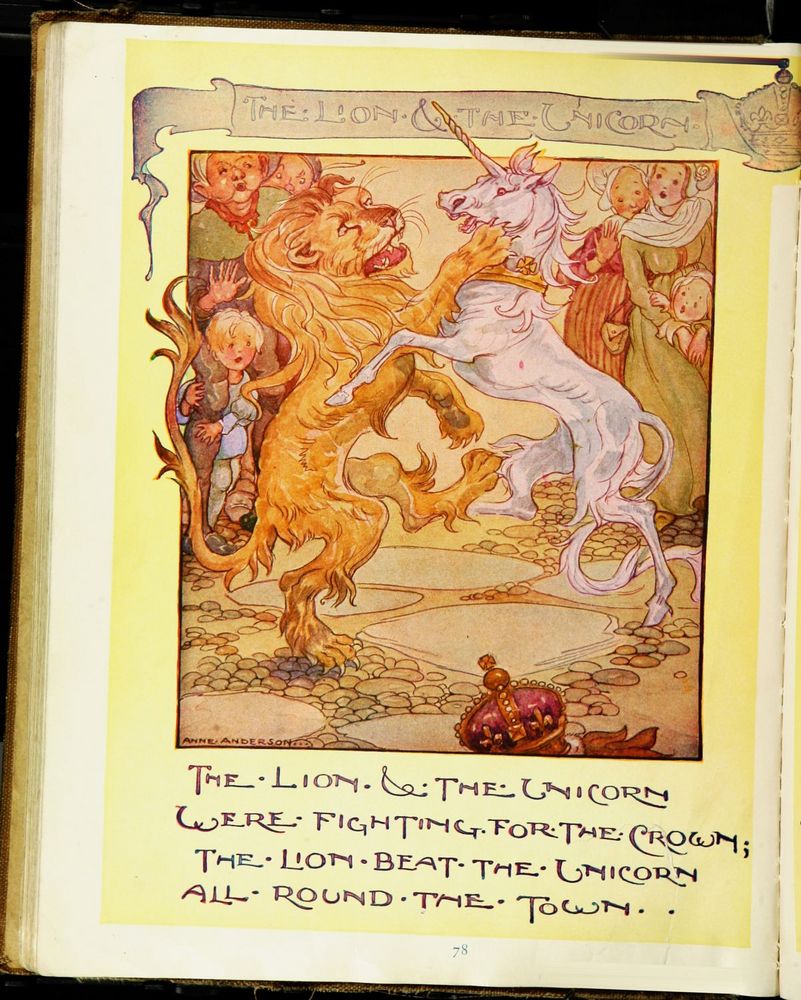 THE · LION · & · THE · UNICORN ·
ANNE · ANDERSON · · ·
THE · LION · & · THE · UNICORN
WERE · FIGHTING · FOR · THE · CROWN;
THE · LION · BEAT · THE · UNICORN
ALL · ROUND · THE · TOWN · ·
78